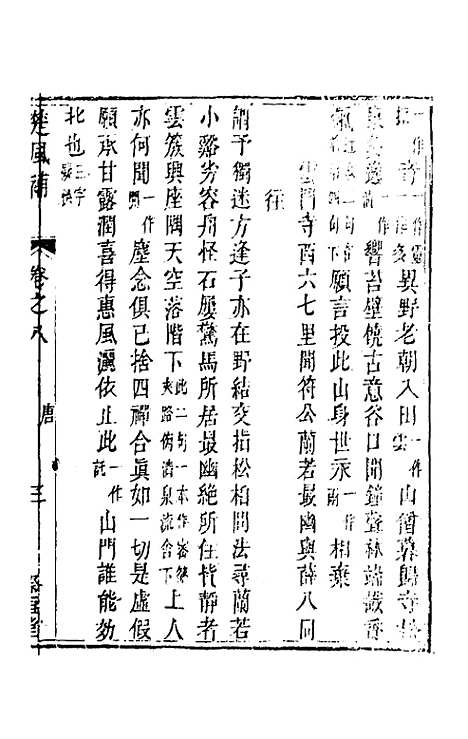 異野老朝入田一作雲山僧暮歸寺
逸響苔壁饒古意谷口聞鐘聲林端識香
氣願言投此山身世永一作相棄
雲門寺西六七里聞符公蘭若最幽與薛八同
往
謂予獨迷方逢子亦在野結交指松柏問法尋蘭若
小谿劣容舟怪石屢驚馬所居最幽絕所住皆靜者
雲簇興座隅天空落階下此二句一本作密篠夾路傍清泉流舍下上人
亦何聞一作塵念俱已捨四禪合眞如一切是虛假
願承甘露潤喜得惠風灑依止此一作託山門誰能効
北也
楚風補
卷之八
唐
三